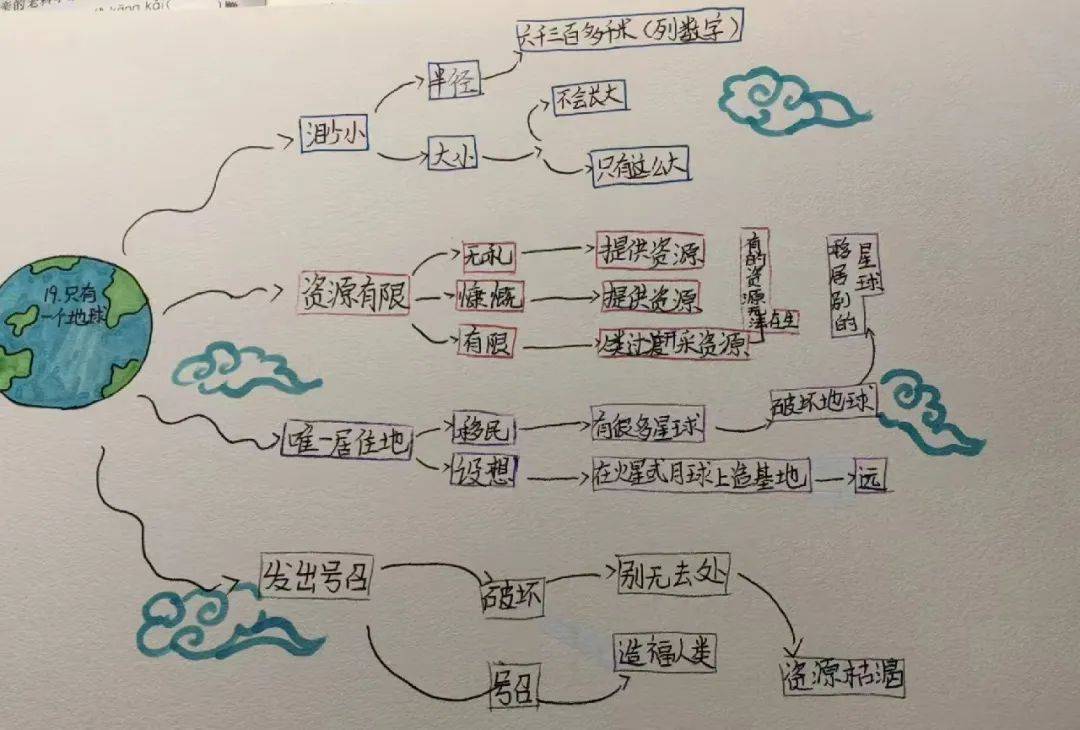 kāng kǎi(
19.只有
一个地球
渺小
半径
六千三百多千米(列数字)
大小
不会长大
只有这么大
资源有限
无私
提供资源
慷慨
提供资源
有限
人类过度开采资源
有的资源无法在生
唯一居住地
移民
有很多星球
破坏地球
移居别的
星球
设想
在火星或月球上造基地
远
发出号召
破坏
别无去处
资源枯渴
号召
造福人类